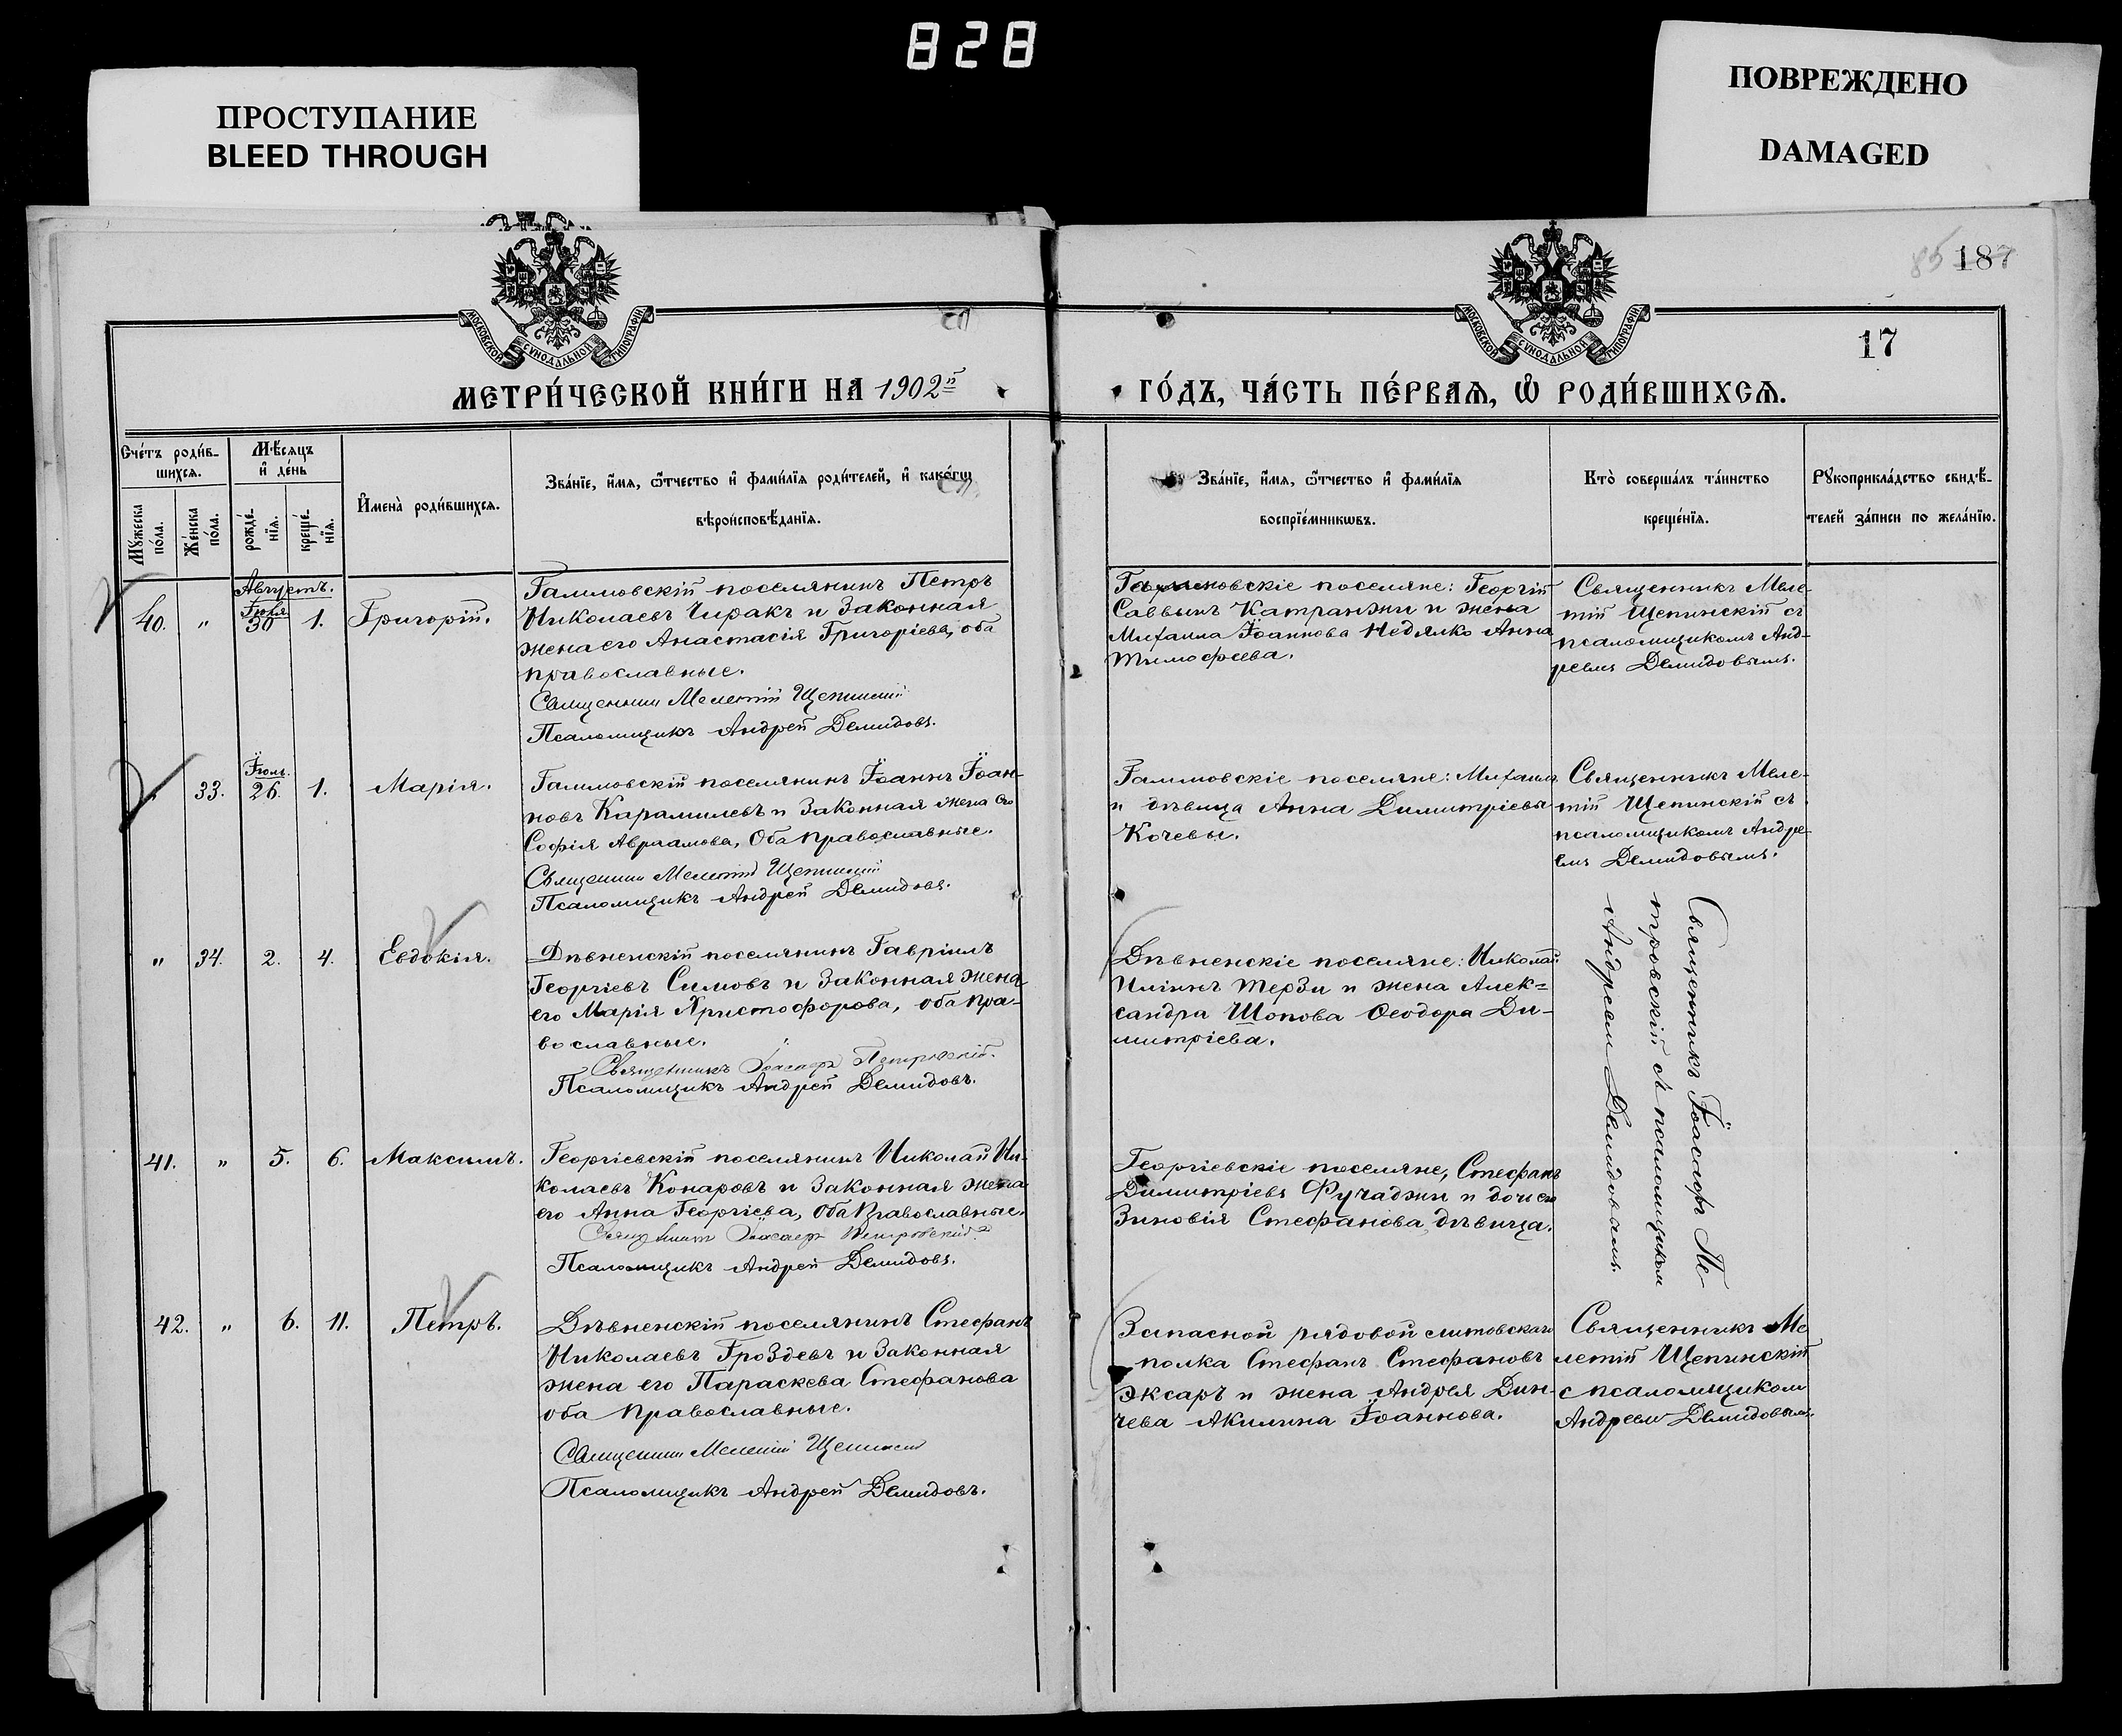 828
ПРОСТУПАНИЕ
BLEED THROUGH
ПОВРЕЖДЕНО
DAMAGED
85 187
17
МОСКОВСКОЙ СѴНОДАЛЬНОЙ ТИПОГРАФІИ
МОСКОВСКОЙ СѴНОДАЛЬНОЙ ТИПОГРАФІИ
МЕТРИ́ЧЕСКОЙ КНИ́ГИ НА 1902й
ГО́ДЪ, ЧА́СТЬ ПЕ́РВАѦ, Ѡ҆ РОДИ́ВШИХСѦ.
Сче́тъ роди́в-
шихсѧ.
Мꙋ́жеска
по́ла.
Же́нска
по́ла.
Мѣ́сѧцъ
и҆ де́нь
рожде́-
нїѧ.
креще́-
нїѧ.
И҆мена̀ роди́вшихсѧ.
Зва́нїе, и҆́мѧ, ѻ҆́тчество и҆ фами́лїѧ роди́телей, и҆ како́гѡ
вѣроисповѣ́данїѧ.
Зва́нїе, и҆́мѧ, ѻ҆́тчество и҆ фами́лїѧ
воспрїе́мникѡвъ.
Кто̀ соверша́лъ та́инство
креще́нїѧ.
Рꙋкоприкла́дство свидѣ́-
телей за́писи по жела́нїю.
Августъ.
40. " Іюля 30 1. Григорій.
Галимовскій поселянинъ Петръ
Николаевъ Чиракъ и законная
жена его Анастасія Григоріева, оба
православные.
Священник Мелетій Щепинский
Псаломщикъ Андрей Демидовъ.
Галимовскіе поселяне: Георгій
Саввинъ Катранжи и жена
Михаила Іоаннова Недялко Анна
Тимофеева.
Священникъ Меле-
тій Щепинскій съ
псаломщикомъ Анд-
реемъ Демидовымъ.
33. Іюль. 26. 1. Марія.
Галимовскій поселянинъ Іоаннъ Іоан-
новъ Карамилевъ и законная жена его
Софія Авраамова, оба православные.
Священник Мелетій Щепинский
Псаломщикъ Андрей Демидовъ.
Галимовскіе поселяне: Михаилъ
и дѣвица Анна Димитріевы
Кочевы.
Священникъ Меле-
тій Щепинскій съ
псаломщикомъ Андре-
емъ Демидовымъ.
" 34. 2. 4. Евдокія.
Дѣвненскій поселянинъ Гавріилъ
Георгіевъ Симовъ и законная жена
его Марія Христофорова, оба пра-
вославные.
Священникъ Іоасафъ Петровскій.
Псаломщикъ Андрей Демидовъ.
Дѣвненскіе поселяне: Николай
Иліинъ Терзи и жена Алек-
сандра Шопова Ѳеодора Ди-
митріева.
Священникъ Іоасафъ Пе-
тровскій съ псаломщиком
Андреем Демидовымъ.
41. " 5. 6. Максимъ.
Георгіевскій поселянинъ Николай Ни-
колаевъ Конаровъ и законная жена
его Анна Георгіева, оба православные.
Священникъ Іоасафъ Петровскій
Псаломщикъ Андрей Демидовъ.
Георгіевскіе поселяне, Стефанъ
Димитріевъ Фучаджи и дочь его
Зиновія Стефанова, дѣвица.
42. " 6. 11. Петръ.
Дѣвненскій поселянинъ Стефанъ
Николаевъ Гроздевъ и законная
жена его Параскева Стефанова
оба православные.
Священник Мелетій Щепинский
Псаломщикъ Андрей Демидовъ.
Запасной рядовой литовскаго
полка Стефанъ Стефановъ
Эксаръ и жена Андрея Дин-
чева Акилина Іоаннова.
Священникъ Ме
летій Щепинскій
с псаломщиком
Андреем Демидовымъ.